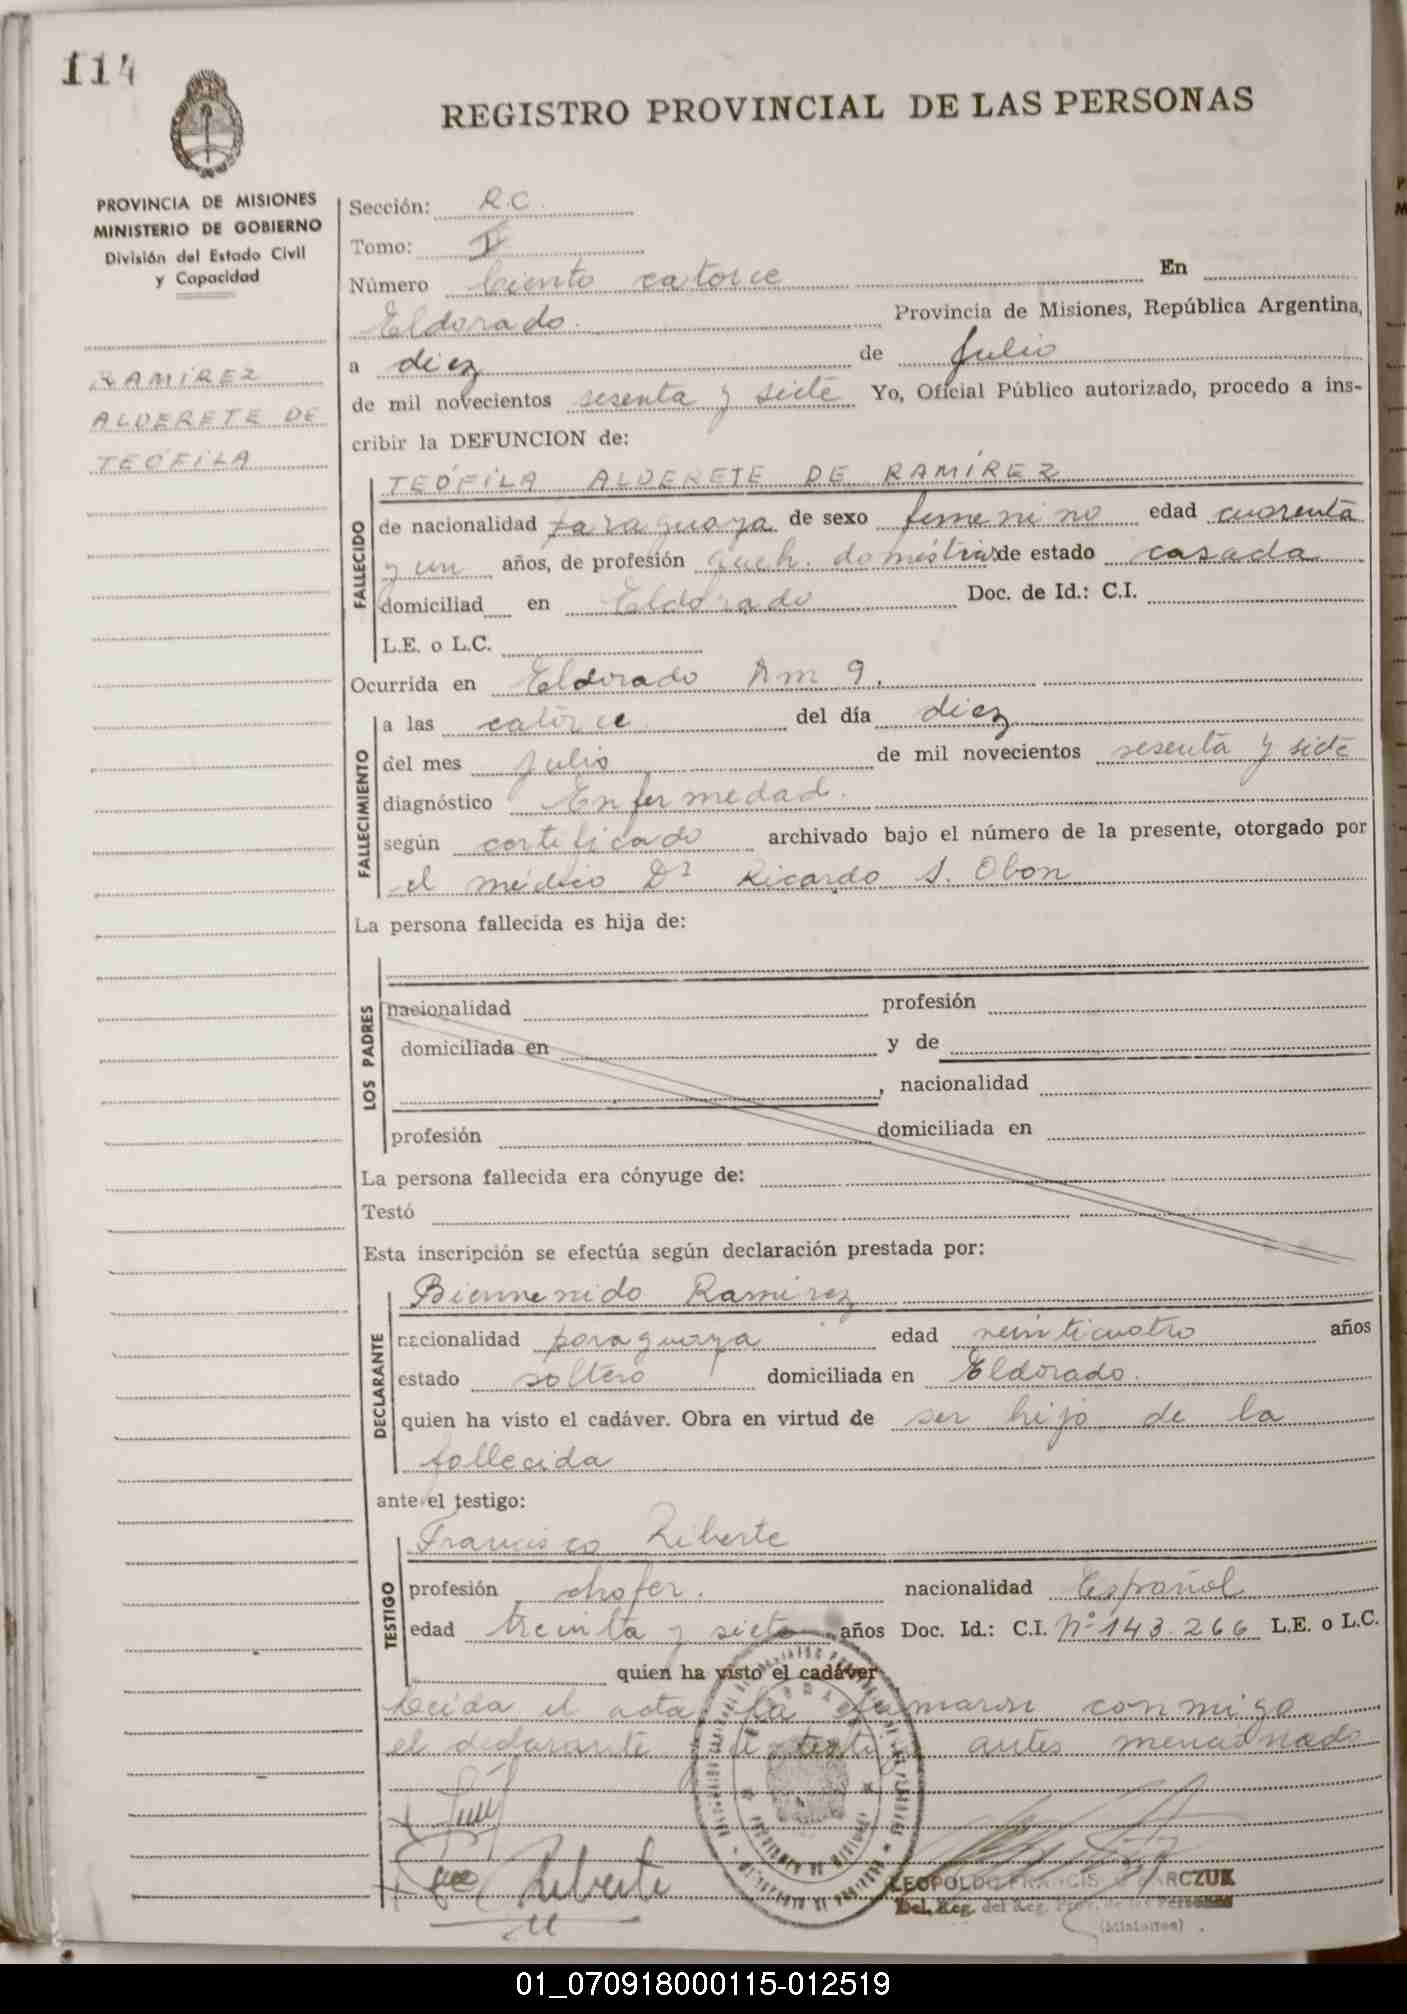 114
REGISTRO PROVINCIAL DE LAS PERSONAS
PROVINCIA DE MISIONES
MINISTERIO DE GOBIERNO
División del Estado Civil
y Capacidad
RAMÍREZ
ALDERETE DE
TEÓFILA
Sección: R.C.
Tomo: I
Número Ciento catorce En
Eldorado. Provincia de Misiones, República Argentina,
a diez de Julio
de mil novecientos sesenta y siete Yo, Oficial Público autorizado, procedo a ins-
cribir la DEFUNCION de:
FALLECIDO
TEÓFILA ALDERETE DE RAMÍREZ
de nacionalidad paraguaya de sexo femenino edad cuarenta
y un años, de profesión queh. domésticos de estado casada
domiciliad en Eldorado Doc. de Id.: C.I.
L.E. o L.C.
Ocurrida en Eldorado Km 9.
FALLECIMIENTO
a las catorce del día diez
del mes julio de mil novecientos sesenta y siete
diagnóstico Enfermedad.
según certificado archivado bajo el número de la presente, otorgado por
el médico Dr Ricardo S. Obon
La persona fallecida es hija de:
LOS PADRES
nacionalidad profesión
domiciliada en y de
, nacionalidad
profesión domiciliada en
La persona fallecida era cónyuge de:
Testó
Esta inscripción se efectúa según declaración prestada por:
DECLARANTE
Bienvenido Ramírez
nacionalidad paraguaya edad veinticuatro años
estado soltero domiciliada en Eldorado.
quien ha visto el cadáver. Obra en virtud de ser hijo de la
fallecida
ante el testigo:
TESTIGO
Francisco Riberte
profesión chofer. nacionalidad Español
edad treinta y siete años Doc. Id.: C.I. Nº 143.266 L.E. o L.C.
quien ha visto el cadáver
Leída el acta la firmaron conmigo
el declarante y testigo antes mencionado
Riberte
LEOPOLDO FRANCIS
Del. Reg. del Reg. Prov. de las Personas
(Misiones)
01_070918000115-012519